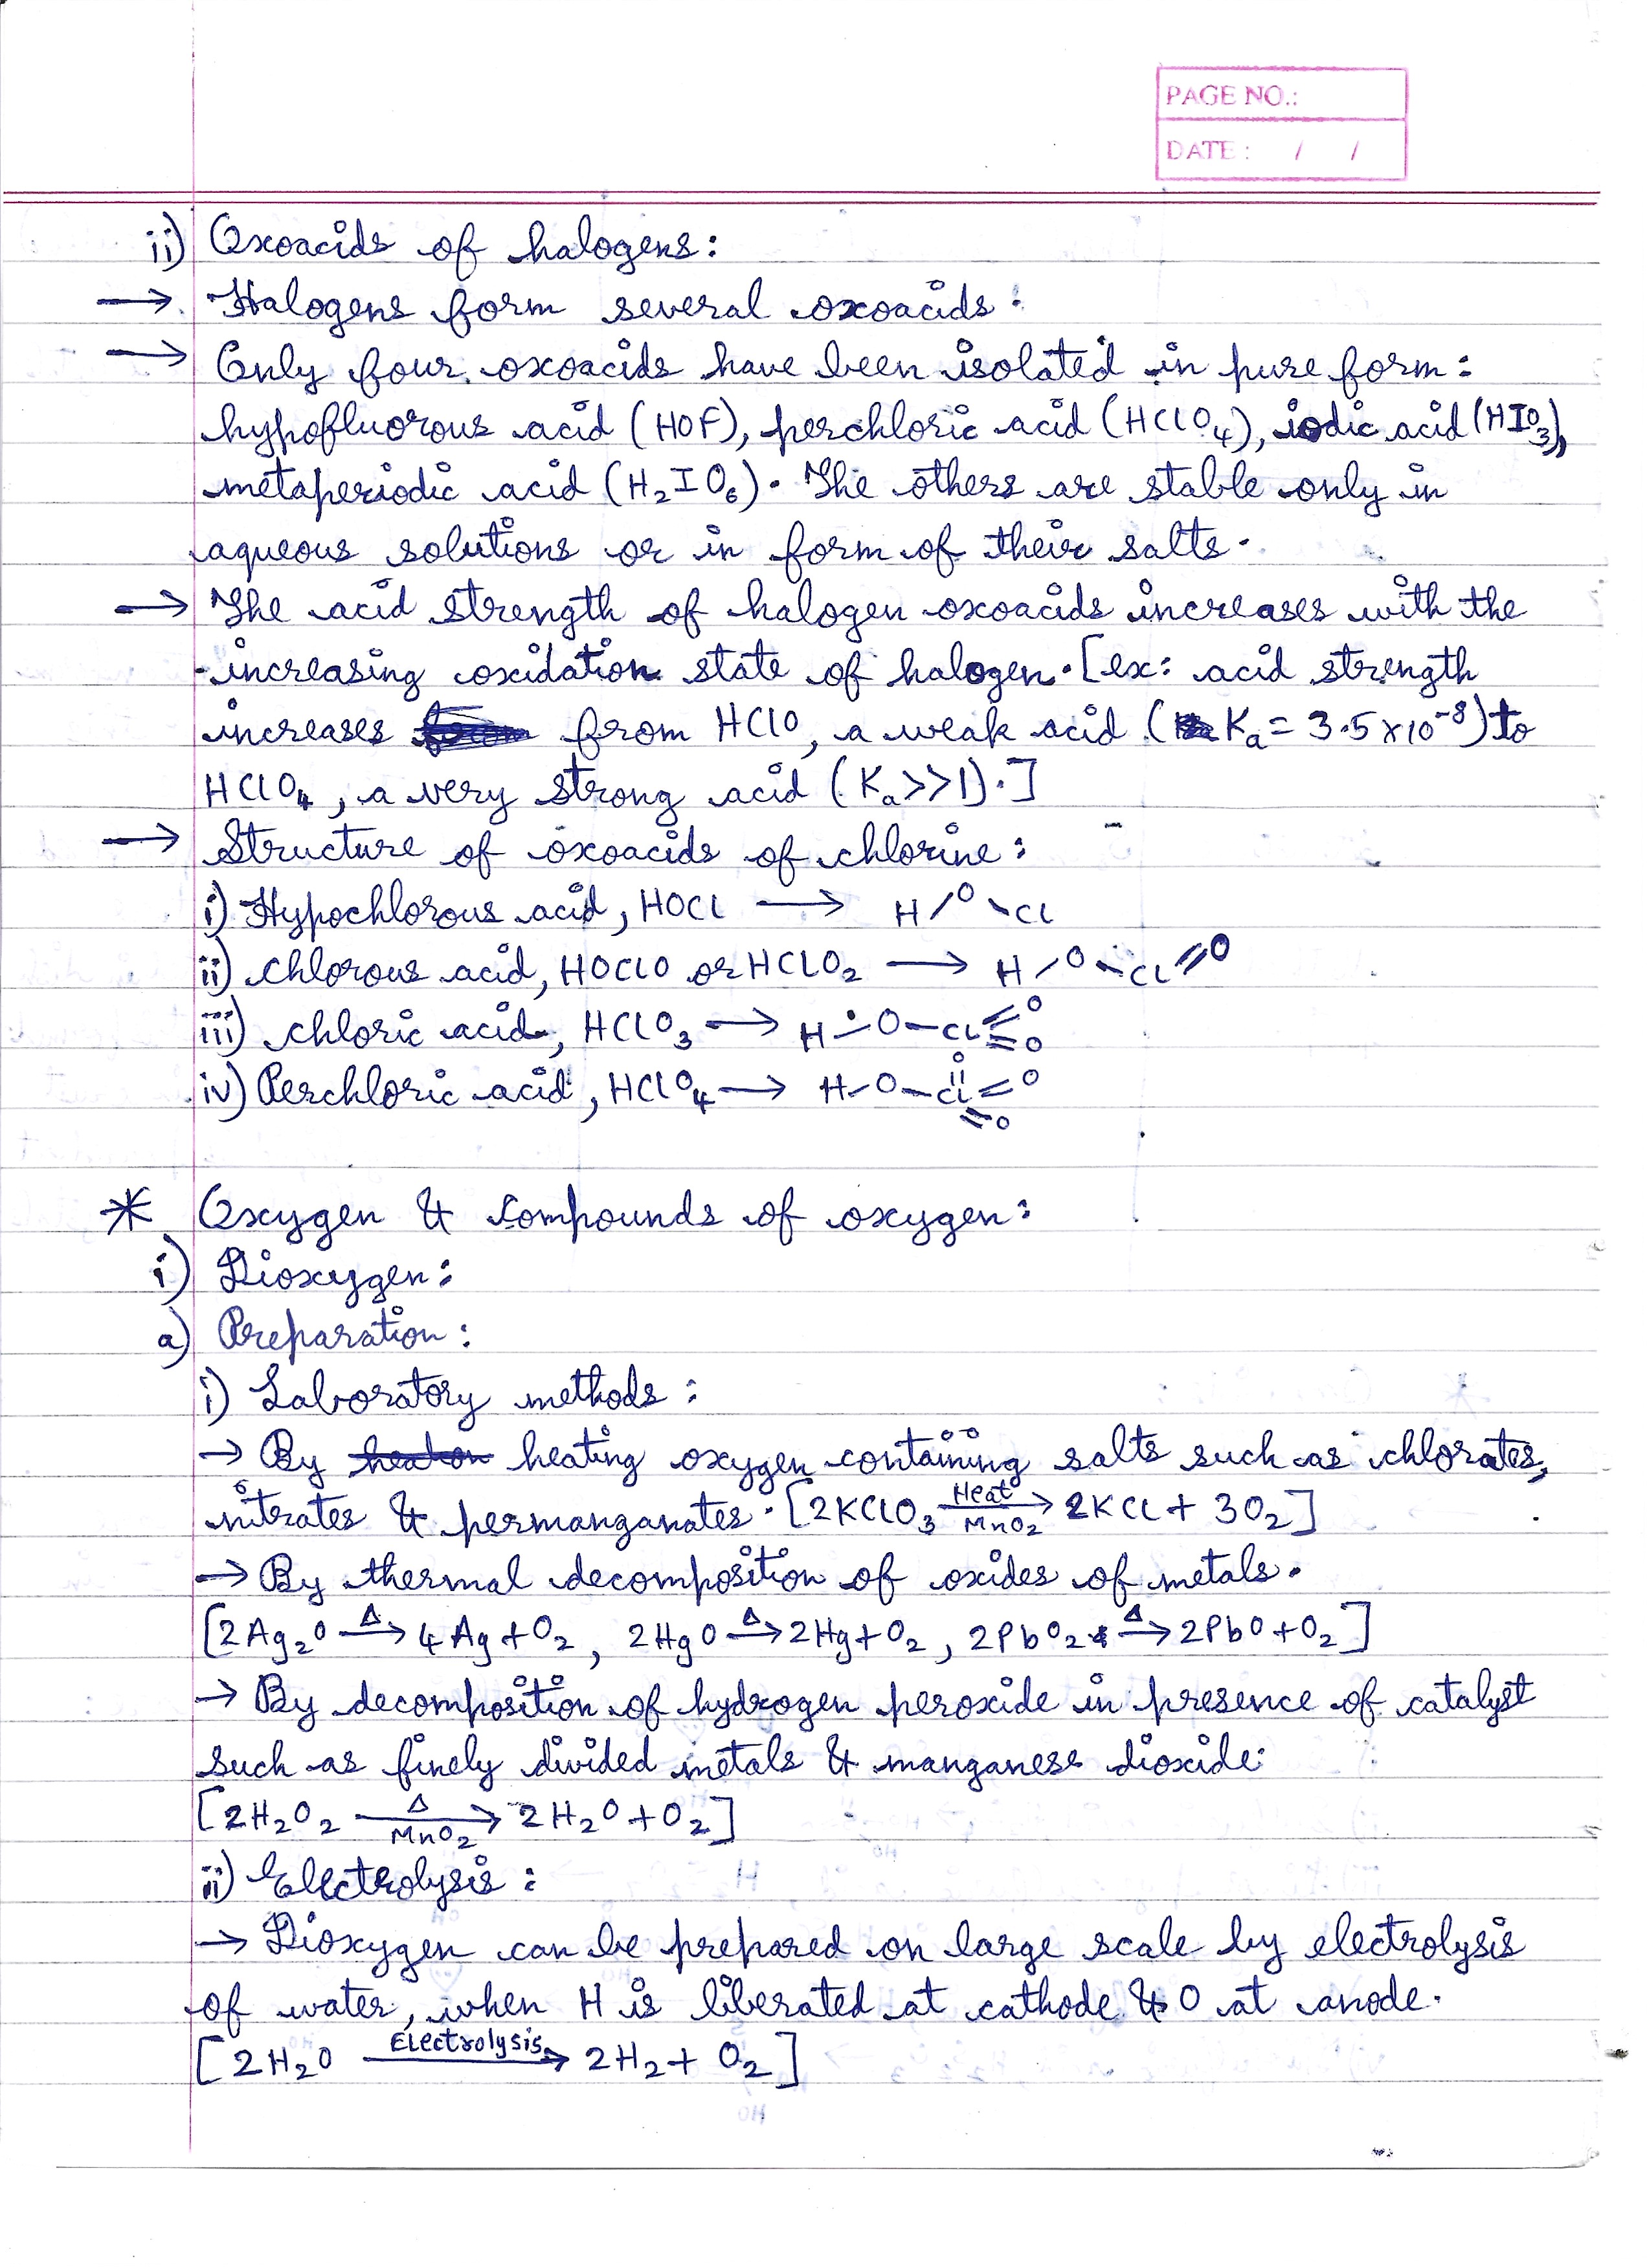 PAGE NO.:
DATE : / /
ii) Oxoacids of halogens:
→ Halogens form several oxoacids:
→ Only four oxoacids have been isolated in pure form:
hypofluorous acid (HOF), perchloric acid (HClO₄), iodic acid (HIO₃),
metaperiodic acid (H₂IO₆). The others are stable only in
aqueous solutions or in form of their salts.
→ The acid strength of halogen oxoacids increases with the
increasing oxidation state of halogen. [ex: acid strength
increases from HClO, a weak acid (Kₐ = 3.5 × 10⁻⁸) to
HClO₄, a very strong acid (Kₐ>>1).]
→ Structure of oxoacids of chlorine:
i) Hypochlorous acid, HOCl → H/O\Cl
ii) chlorous acid, HOClO or HClO₂ → H/O\Cl=O
iii) chloric acid, HClO₃ → H-O-Cl=O =O
iv) Perchloric acid, HClO₄ → H-O-Cl=O =O
* Oxygen & compounds of oxygen:
i) Dioxygen:
a) Preparation:
i) Laboratory methods:
→ By heating oxygen containing salts such as chlorates,
nitrates & permanganates. [2KClO₃ —Heat/MnO₂→ 2KCl + 3O₂]
→ By thermal decomposition of oxides of metals.
[2Ag₂O —Δ→ 4Ag + O₂, 2HgO —Δ→ 2Hg + O₂, 2PbO₂ —Δ→ 2PbO + O₂]
→ By decomposition of hydrogen peroxide in presence of catalyst
such as finely divided metals & manganese dioxide:
[2H₂O₂ —Δ/MnO₂→ 2H₂O + O₂]
ii) Electrolysis:
→ Dioxygen can be prepared on large scale by electrolysis
of water, when H is liberated at cathode & O at anode.
[2H₂O —Electrolysis→ 2H₂ + O₂]